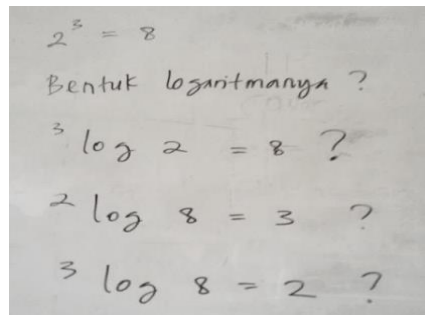 2³ = 8
Bentuk logaritmanya ?
³ log 2 = 8 ?
² log 8 = 3 ?
³ log 8 = 2 ?